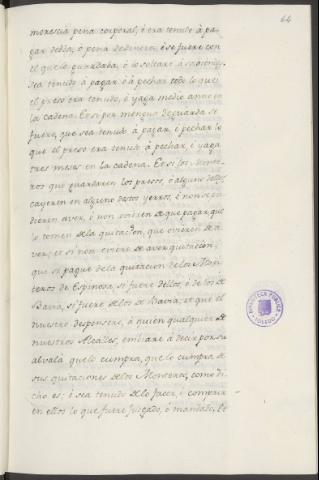 64
merescia pena corporal, o era tenudo à pa-
gar debda, ò pena de dinero, è se fuere con
el que lo guardaba, è lo soltare à sabiendas,
sea tenudo à pagar è à pechar todo lo que
el preso era tenudo, è yaga medio anno en
la cadena. Et si por mengua de guarda se
fuere, que sea tenudo à pagar, è pechar lo
que el preso era tenudo à pechar, è yaga
tres meses en la cadena. Et si los Monte-
ros que guardaren los presos, ò alguno dellos
cayeren en alguno destos yerros, è non se pu-
dieren aver, ò non ovieren de que pagar, que
lo tomen de la quitacion, que ovieren de a-
ver; et si non oviere de aver quitacion,
que se pague de la quitacion de los Mon-
teros de Espinosa, si fuere dellos, ò de los de
Bavia, si fuere de los de Bavia; et que el
nuestro despensero, à quien qualquier de
nuestros Alcalles embiare à decir por su
alvala que lo cumpra, que lo cumpra de
sus quitaciones de los Monteros, como di-
cho es; è sea tenudo de lo facer, è comprir
en ellos lo que fuere juzgado, è mandado. Et
BIBLIOTECA PUBLICA
TOLEDO